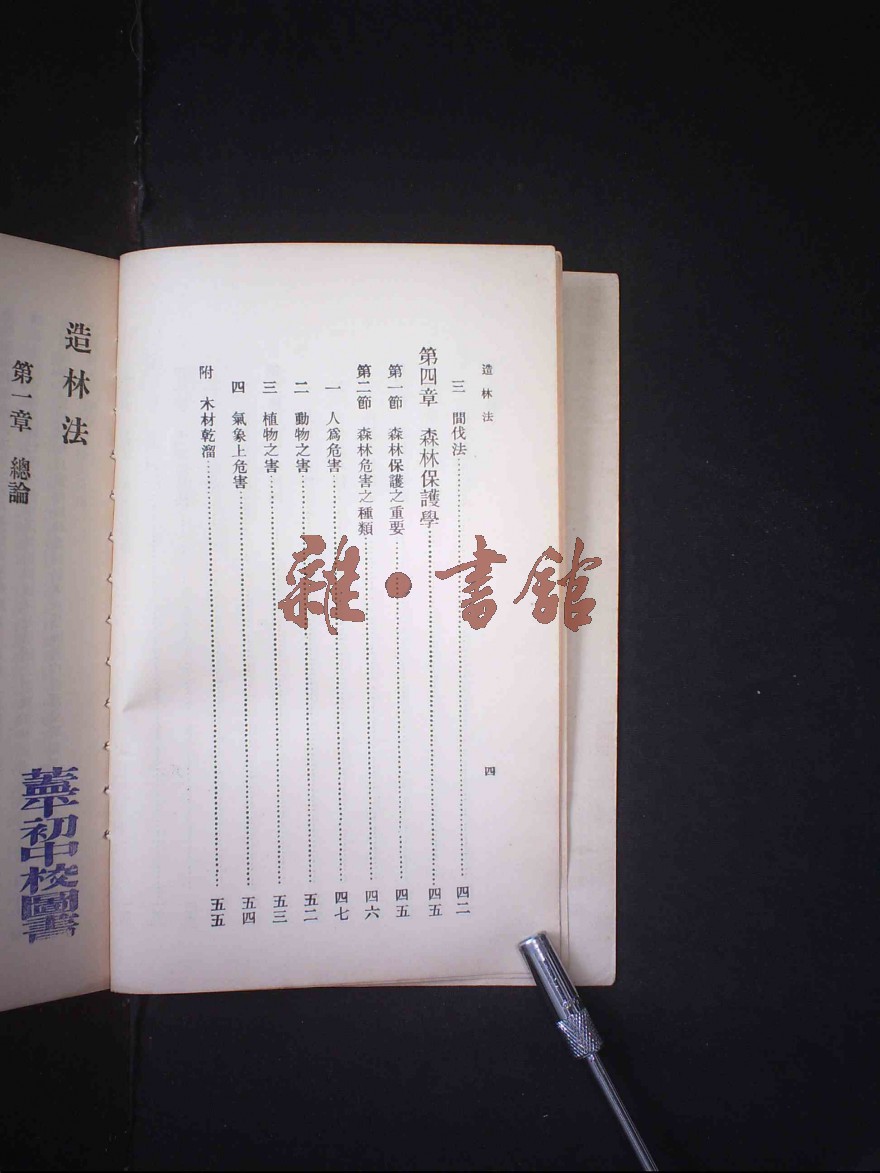 造林法
四
三 間伐法 四二
第四章 森林保護學 四五
第一節 森林保護之重要 四五
第二節 森林危害之種類 四六
一 人爲危害 四七
二 動物之害 五二
三 植物之害 五三
四 氣象上危害 五四
附 木材乾溜 五五
造林法
第一章 總論
蓋平初中校圖書
雜·書館